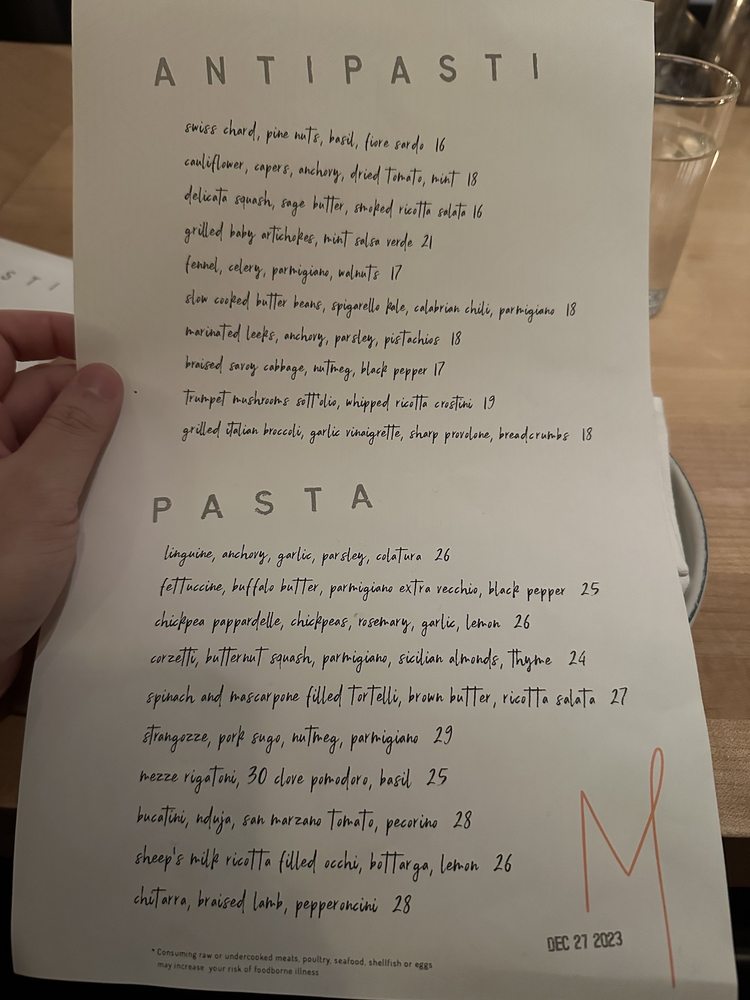 ANTIPASTI
swiss chard, pine nuts, basil, fiore sardo 16
cauliflower, capers, anchovy, dried tomato, mint 18
delicata squash, sage butter, smoked ricotta salata 16
grilled baby artichokes, mint salsa verde 21
fennel, celery, parmigiano, walnuts 17
slow cooked butter beans, spigarello kale, calabrian chili, parmigiano 18
marinated leeks, anchovy, parsley, pistachios 18
braised savoy cabbage, nutmeg, black pepper 17
trumpet mushrooms sott'olio, whipped ricotta crostini 19
grilled italian broccoli, garlic vinaigrette, sharp provolone, breadcrumbs 18
STI
PASTA
linguine, anchovy, garlic, parsley, colatura 26
fettuccine, buffalo butter, parmigiano extra vecchio, black pepper 25
chickpea pappardelle, chickpeas, rosemary, garlic, lemon 26
corzetti, butternut squash, parmigiano, sicilian almonds, thyme 24
spinach and mascarpone filled tortelli, brown butter, ricotta salata 27
strangozze, pork sugo, nutmeg, parmigiano 29
mezze rigatoni, 30 clove pomodoro, basil 25
bucatini, nduja, san marzano tomato, pecorino 28
sheep's milk ricotta filled occhi, bottarga, lemon 26
chitarra, braised lamb, pepperoncini 28
M
DEC 27 2023
* Consuming raw or undercooked meats, poultry, seafood, shellfish or eggs
may increase your risk of foodborne illness